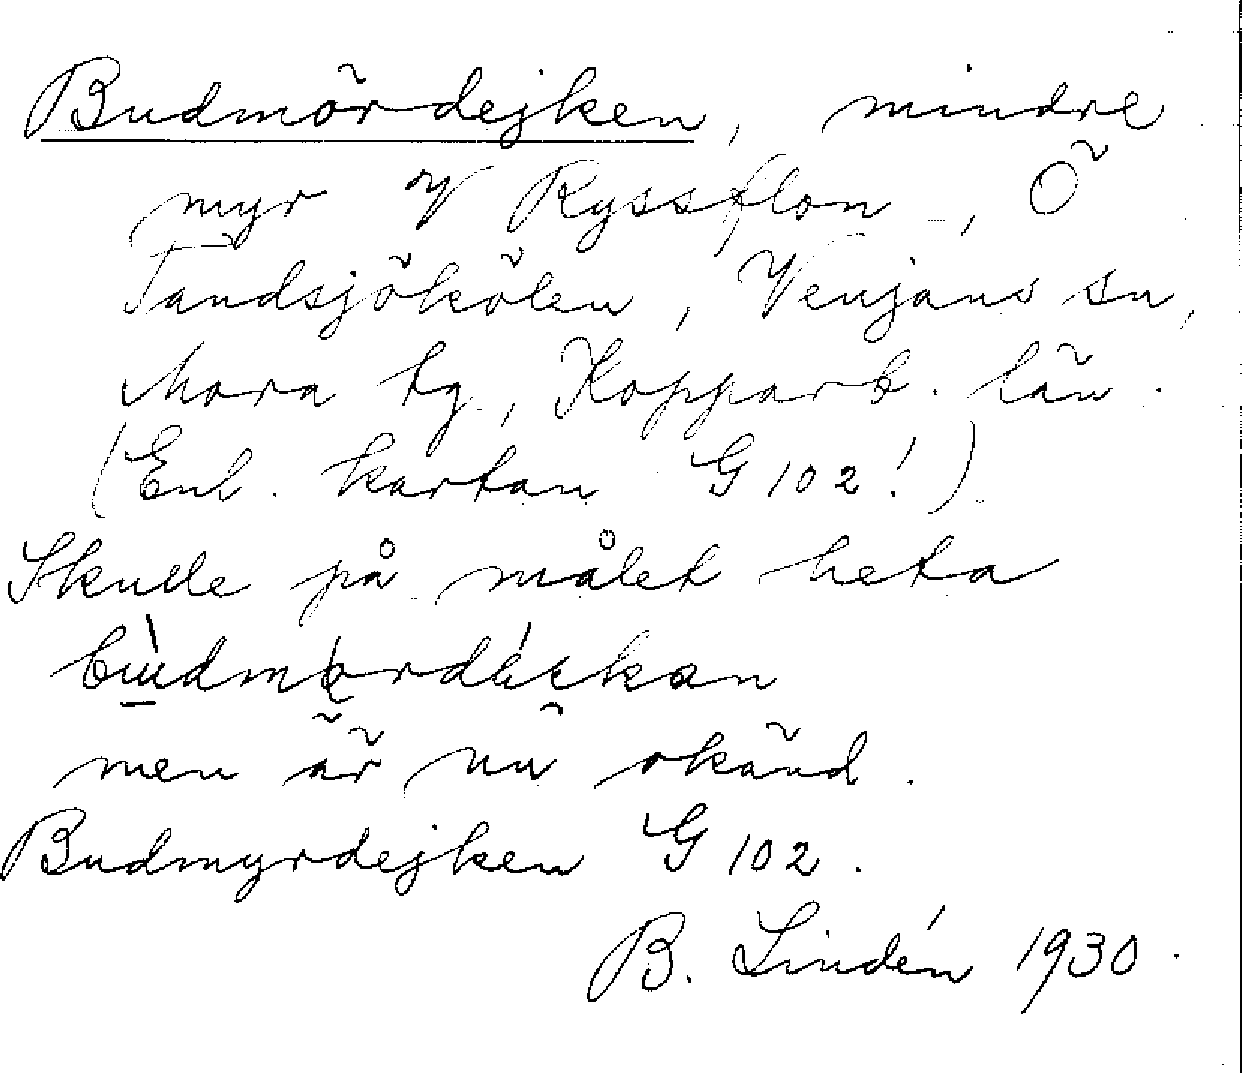 Budmördejken, mindre
myr V Ryssflon, Ö
Tandsjökölen, Venjans sn,
Mora tg, Kopparb. län.
(Enl. kartan G 102!).
Skulle på målet heta
men är nu okänd.
Budmyrdejken G 102.
B. Lindén 1930.